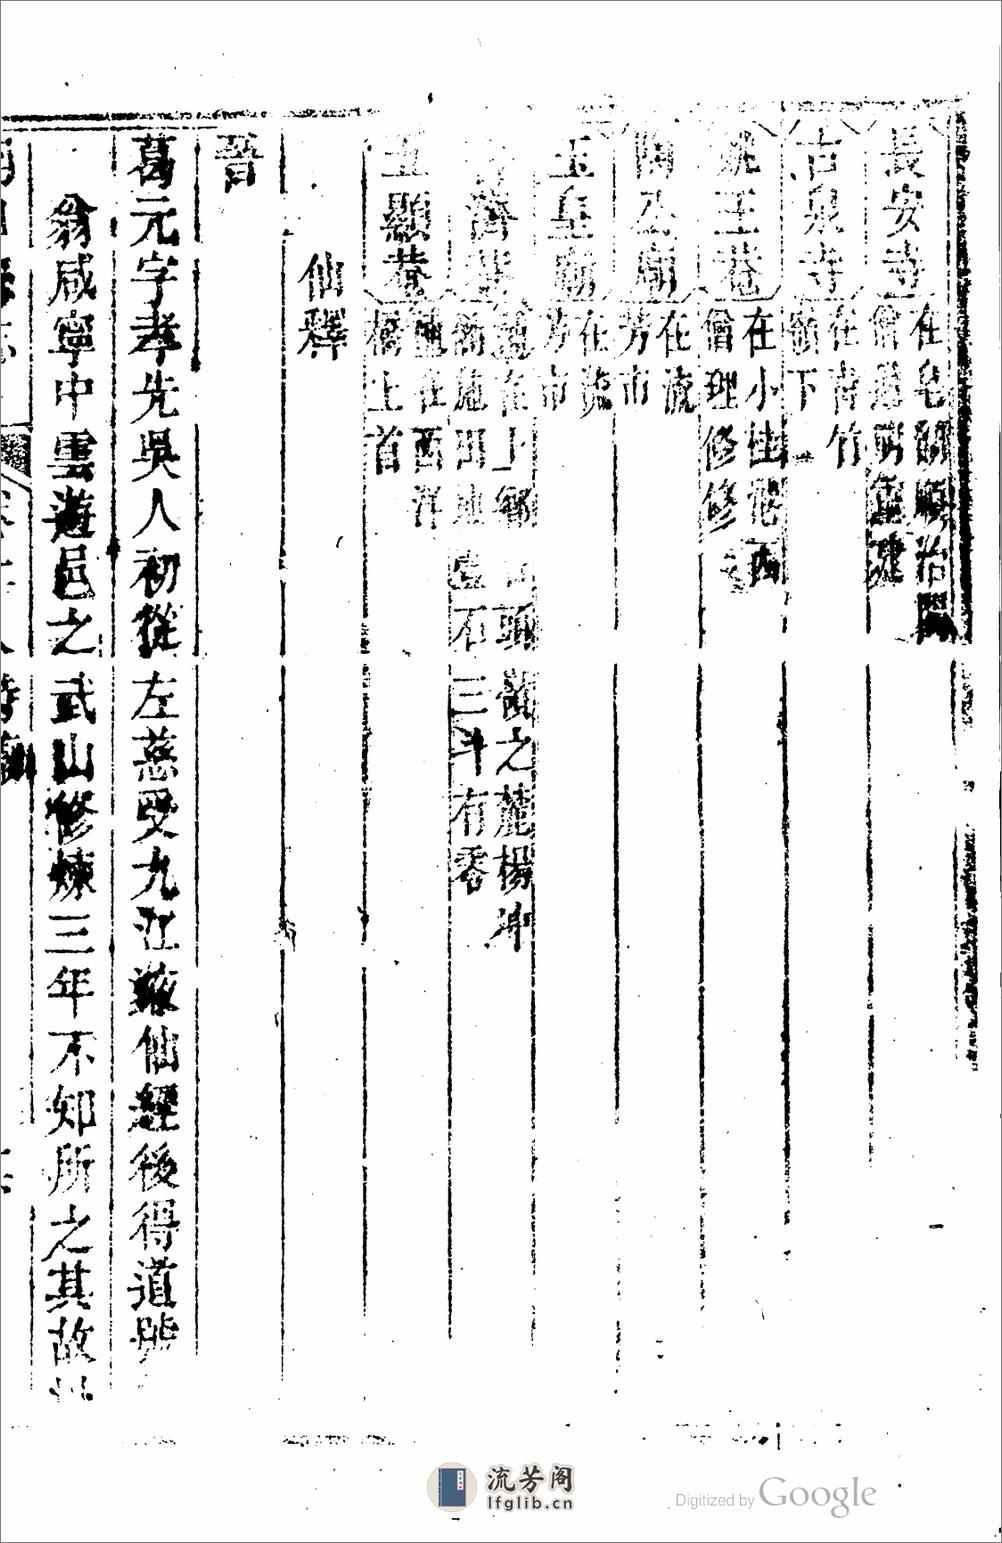 長安寺 在皂關順治間
僧慈明重建
古泉寺 在青竹
嶺下
姚王菴 在小桂港西
僧理修修
陶公廟 在流
芳市
玉皇廟 在流
芳市
濟菴 在上鄉頭嶺之麓楊坤
施田石三斗有零
五顯菴 在西洋
橋上首
仙釋
晉
葛元字孝先吳人初從左慈受九江液仙經後得道號
翁咸寧中雲遊邑之武山修煉三年不知所之其故
流芳阁
lfglib.cn
Digitized by Google